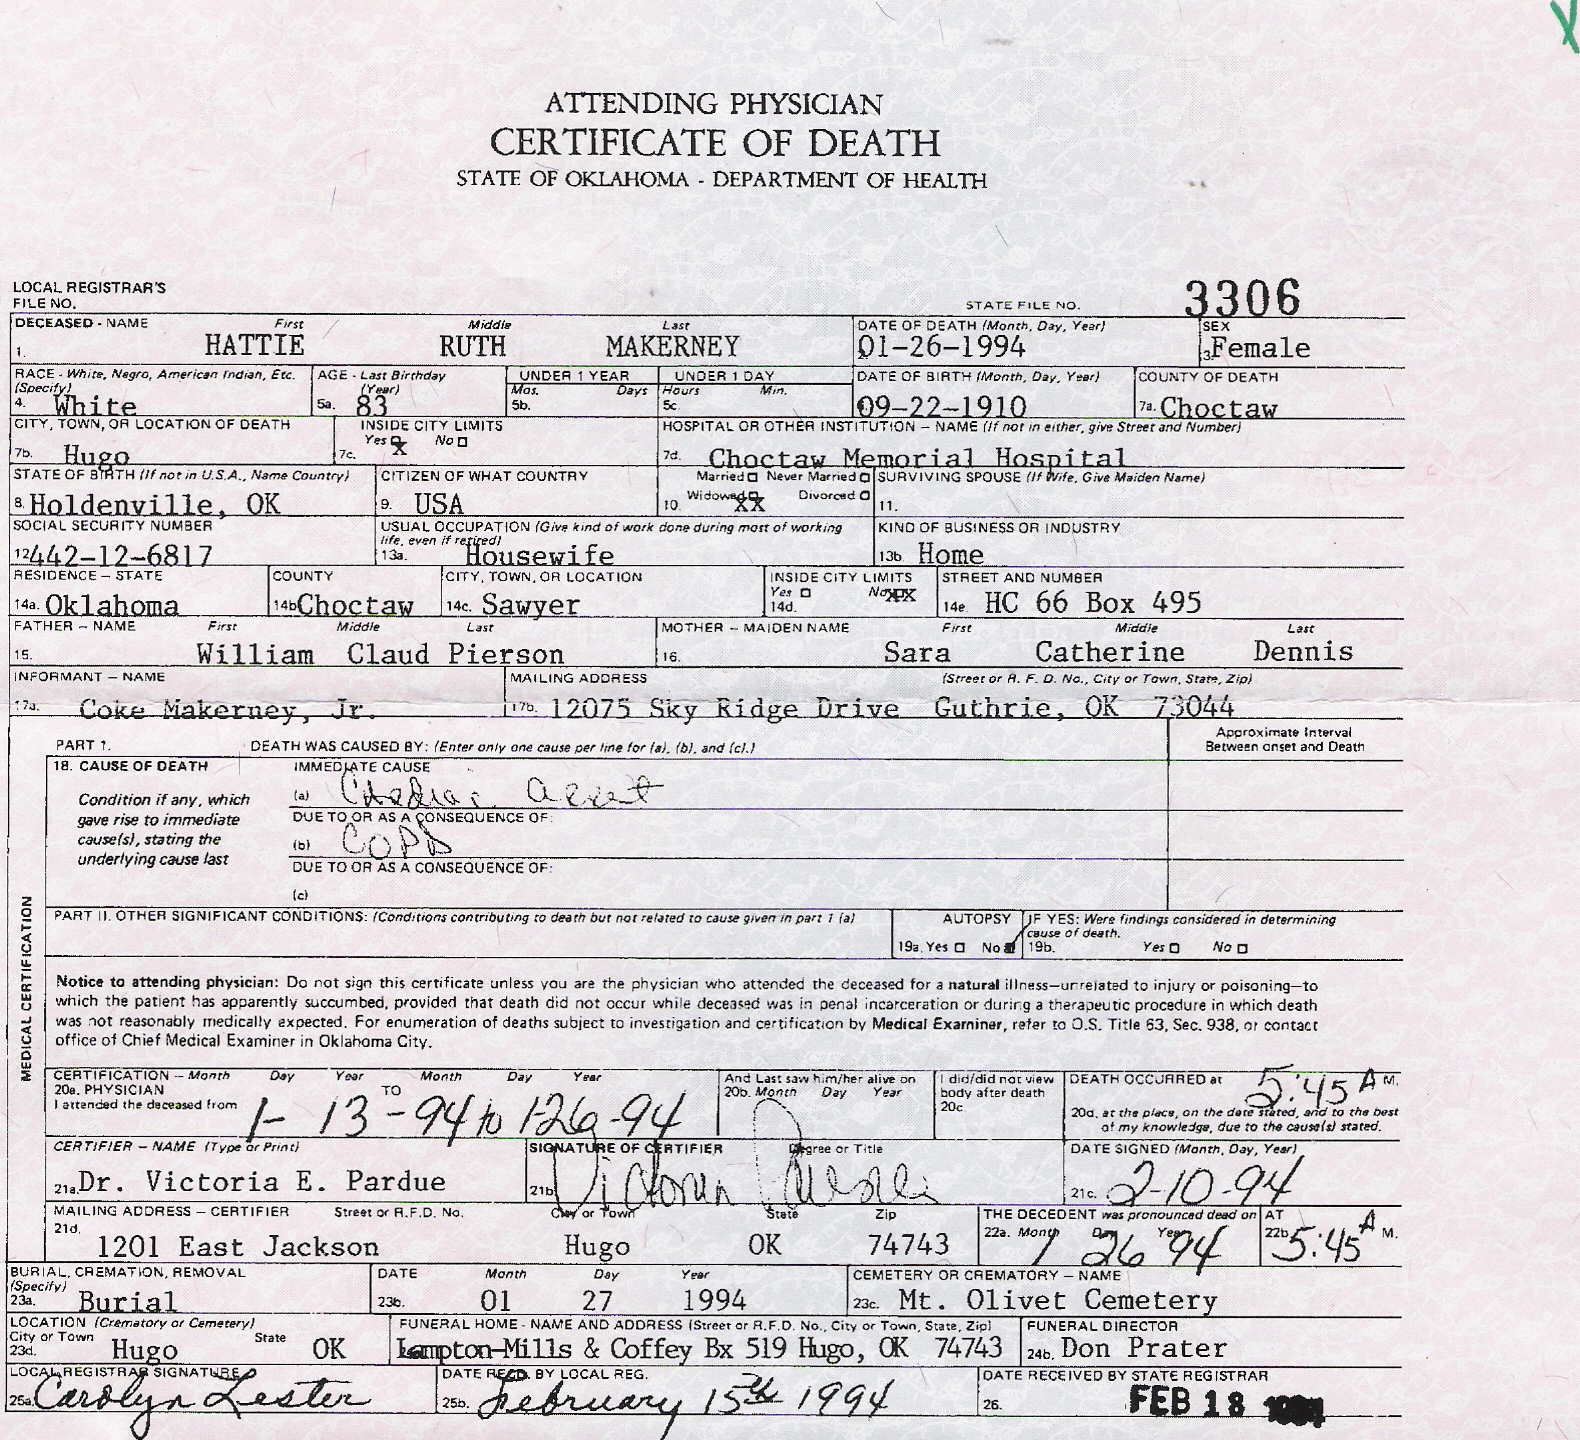 ATTENDING PHYSICIAN
CERTIFICATE OF DEATH
STATE OF OKLAHOMA - DEPARTMENT OF HEALTH
LOCAL REGISTRAR'S
FILE NO.
STATE FILE NO. 3306
DECEASED - NAME First Middle Last DATE OF DEATH (Month, Day, Year) SEX
1. HATTIE RUTH MAKERNEY 01-26-1994 3. Female
RACE - White, Negro, American Indian, Etc. AGE - Last Birthday UNDER 1 YEAR UNDER 1 DAY DATE OF BIRTH (Month, Day, Year) COUNTY OF DEATH
(Specify) (Year) Mos. Days Hours Min.
4. White 5a. 83 5b. 5c 09-22-1910 7a. Choctaw
CITY, TOWN, OR LOCATION OF DEATH INSIDE CITY LIMITS HOSPITAL OR OTHER INSTITUTION - NAME (If not in either, give Street and Number)
Yes X No
7b. Hugo 7c. 7d. Choctaw Memorial Hospital
STATE OF BIRTH (If not in U.S.A., Name Country) CITIZEN OF WHAT COUNTRY Married Never Married SURVIVING SPOUSE (If Wife, Give Maiden Name)
8. Holdenville, OK 9. USA 10. Widowed XX Divorced 11.
SOCIAL SECURITY NUMBER USUAL OCCUPATION (Give kind of work done during most of working KIND OF BUSINESS OR INDUSTRY
life, even if retired)
12 442-12-6817 13a. Housewife 13b. Home
RESIDENCE - STATE COUNTY CITY, TOWN, OR LOCATION INSIDE CITY LIMITS STREET AND NUMBER
Yes No XX
14a. Oklahoma 14b Choctaw 14c. Sawyer 14d. 14e. HC 66 Box 495
FATHER - NAME First Middle Last MOTHER - MAIDEN NAME First Middle Last
15. William Claud Pierson 16. Sara Catherine Dennis
INFORMANT - NAME MAILING ADDRESS (Street or R. F. D. No., City or Town, State, Zip)
17a. Coke Makerney, Jr. 17b. 12075 Sky Ridge Drive Guthrie, OK 73044
PART 1. DEATH WAS CAUSED BY: (Enter only one cause per line for (a), (b), and (c).) Approximate Interval
Between onset and Death
18. CAUSE OF DEATH IMMEDIATE CAUSE
Condition if any, which (a)
gave rise to immediate DUE TO OR AS A CONSEQUENCE OF:
cause(s), stating the (b) COPD
underlying cause last DUE TO OR AS A CONSEQUENCE OF:
(c)
MEDICAL CERTIFICATION
PART II. OTHER SIGNIFICANT CONDITIONS: (Conditions contributing to death but not related to cause given in part 1 (a) AUTOPSY IF YES: Were findings considered in determining
cause of death.
19a. Yes No 19b. Yes No
Notice to attending physician: Do not sign this certificate unless you are the physician who attended the deceased for a natural illness—unrelated to injury or poisoning—to
which the patient has apparently succumbed, provided that death did not occur while deceased was in penal incarceration or during a therapeutic procedure in which death
was not reasonably medically expected. For enumeration of deaths subject to investigation and certification by Medical Examiner, refer to O.S. Title 63, Sec. 938, or contact
office of Chief Medical Examiner in Oklahoma City.
CERTIFICATION - Month Day Year Month Day Year And Last saw him/her alive on I did/did not view DEATH OCCURRED at 5:45 A M.
20a. PHYSICIAN TO 20b. Month Day Year body after death
I attended the deceased from 1-13-94 to 1-26-94 20c. 20d. at the place, on the date stated, and to the best
of my knowledge, due to the cause(s) stated.
CERTIFIER - NAME (Type or Print) SIGNATURE OF CERTIFIER Degree or Title DATE SIGNED (Month, Day, Year)
21a. Dr. Victoria E. Pardue 21b. Victoria Pardue 21c. 2-10-94
MAILING ADDRESS - CERTIFIER Street or R.F.D. No. City or Town State Zip THE DECEDENT was pronounced dead on AT
21d. 22a. Month Day Year 22b.
1201 East Jackson Hugo OK 74743 1 26 94 5:45 A M.
BURIAL, CREMATION, REMOVAL DATE Month Day Year CEMETERY OR CREMATORY - NAME
(Specify)
23a. Burial 23b. 01 27 1994 23c. Mt. Olivet Cemetery
LOCATION (Crematory or Cemetery) FUNERAL HOME - NAME AND ADDRESS (Street or R.F.D. No., City or Town, State, Zip) FUNERAL DIRECTOR
City or Town State
23d. Hugo OK Lampton-Mills & Coffey Bx 519 Hugo, OK 74743 24b. Don Prater
LOCAL REGISTRAR SIGNATURE DATE RECD. BY LOCAL REG. DATE RECEIVED BY STATE REGISTRAR
25a. Carolyn Lester 25b. February 15th 1994 26. FEB 18